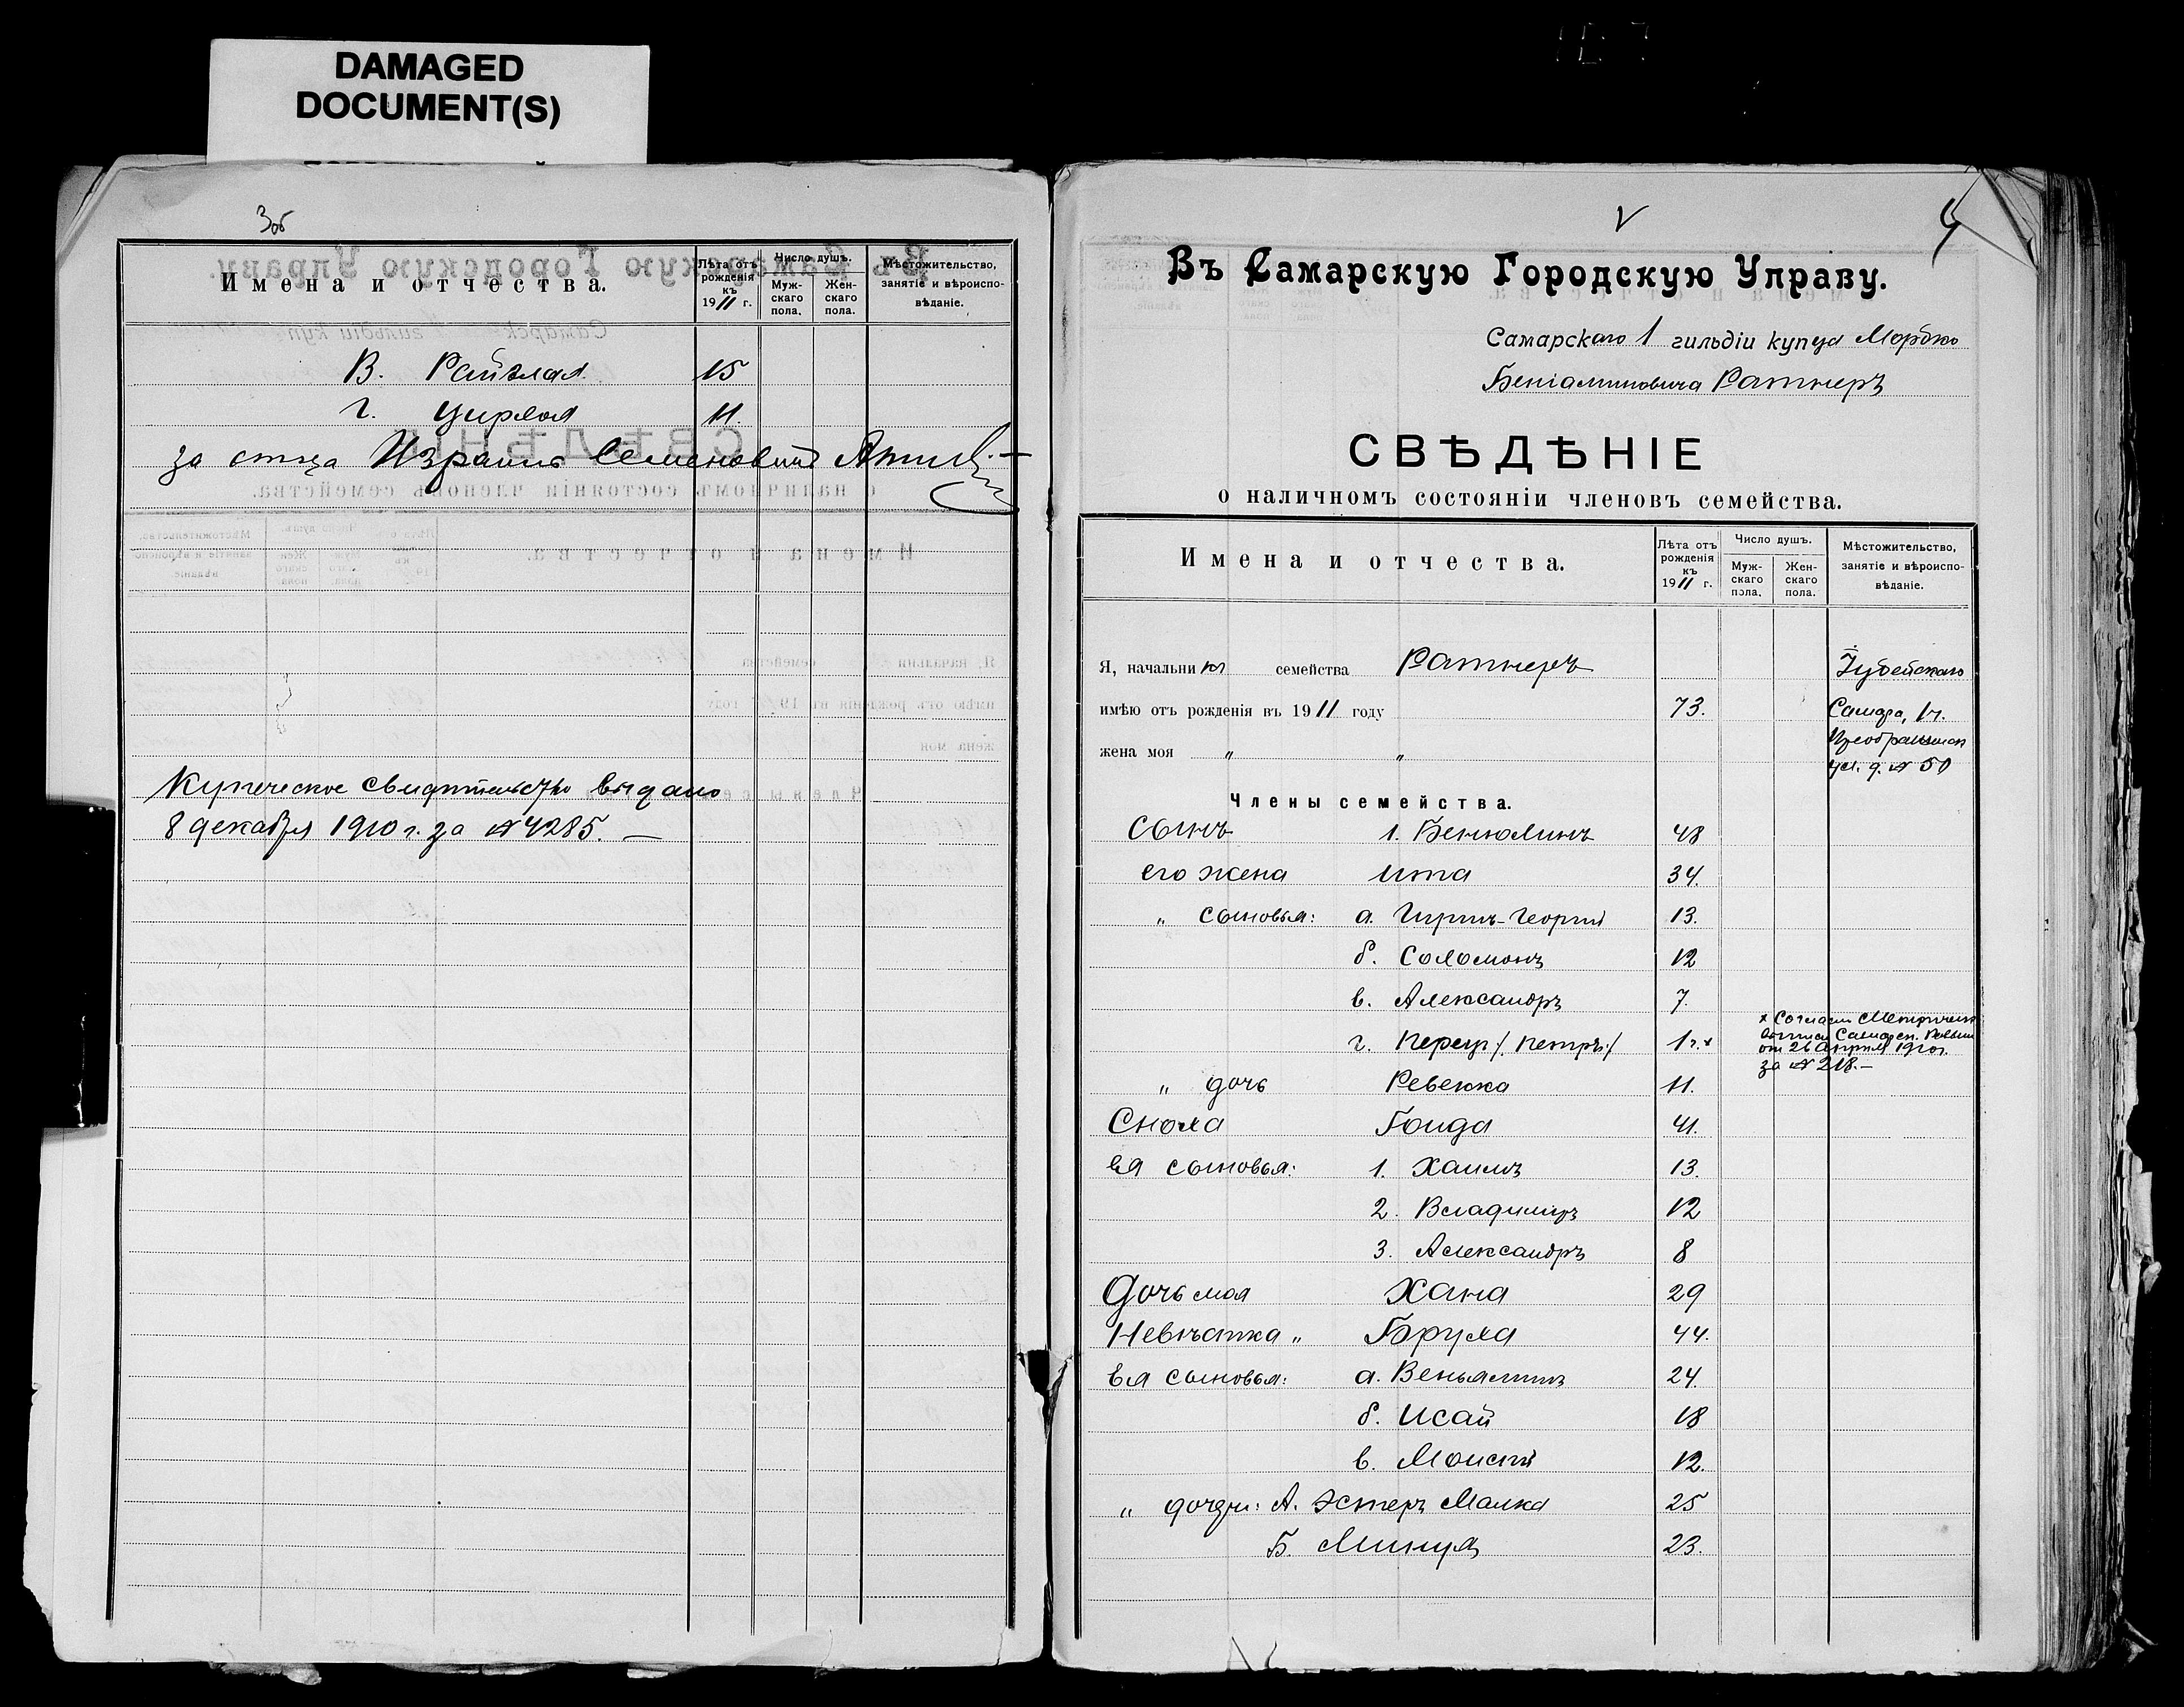 DAMAGED
DOCUMENT(S)
3об
Имена и отчества.
Лѣта отъ рожденія къ 1911 г.
Число душъ.
Мужскаго пола.
Женскаго пола.
Мѣстожительство, занятіе и вѣроисповѣданіе.
В. Райзлая 15
Г. Цирля 11.
за отца Израиль Семеновичъ
Купеческое свидѣтельство выдано
8 декабря 1910 г. за № 4285. —
4
Въ Самарскую Городскую Управу.
Самарскаго 1 гильдіи купца Мордко
Беніаминовича Ратнеръ
СВѢДѢНІЕ
о наличномъ состояніи членовъ семейства.
Имена и отчества.
Лѣта отъ рожденія къ 1911 г.
Число душъ.
Мужскаго пола.
Женскаго пола.
Мѣстожительство, занятіе и вѣроисповѣданіе.
Я, начальникъ семейства Ратнеръ Іудейскаго
имѣю отъ рожденія въ 1911 году 73. Самара, 1 ч.
жена моя " " Преображенск
ул. д. № 50
Члены семейства.
Сынъ 1. Бенюминъ 48
его жена Ита 34.
" сыновья: а. Гиршъ-Георгій 13.
б. Соломонъ 12
в. Александръ 7.
г. Перецъ /. Петръ:/ 1 г. х
х Согласно Метрической
выписи Самарск. Раввина
от 26 апрѣля 1910 г.
за № 218. —
" дочь Ревекка 11.
Сноха Гоида 41.
ея сыновья: 1. Хаимъ 13.
2. Владиміръ 12
3. Александръ 8
Дочь моя Хана 29
Невѣстка " Брула 44.
Ея сыновья: а. Веньяминъ 24.
б. Исай 18
в. Моисей 12.
" дочери: А. Эстеръ Малка 25
Б. Минця 23.